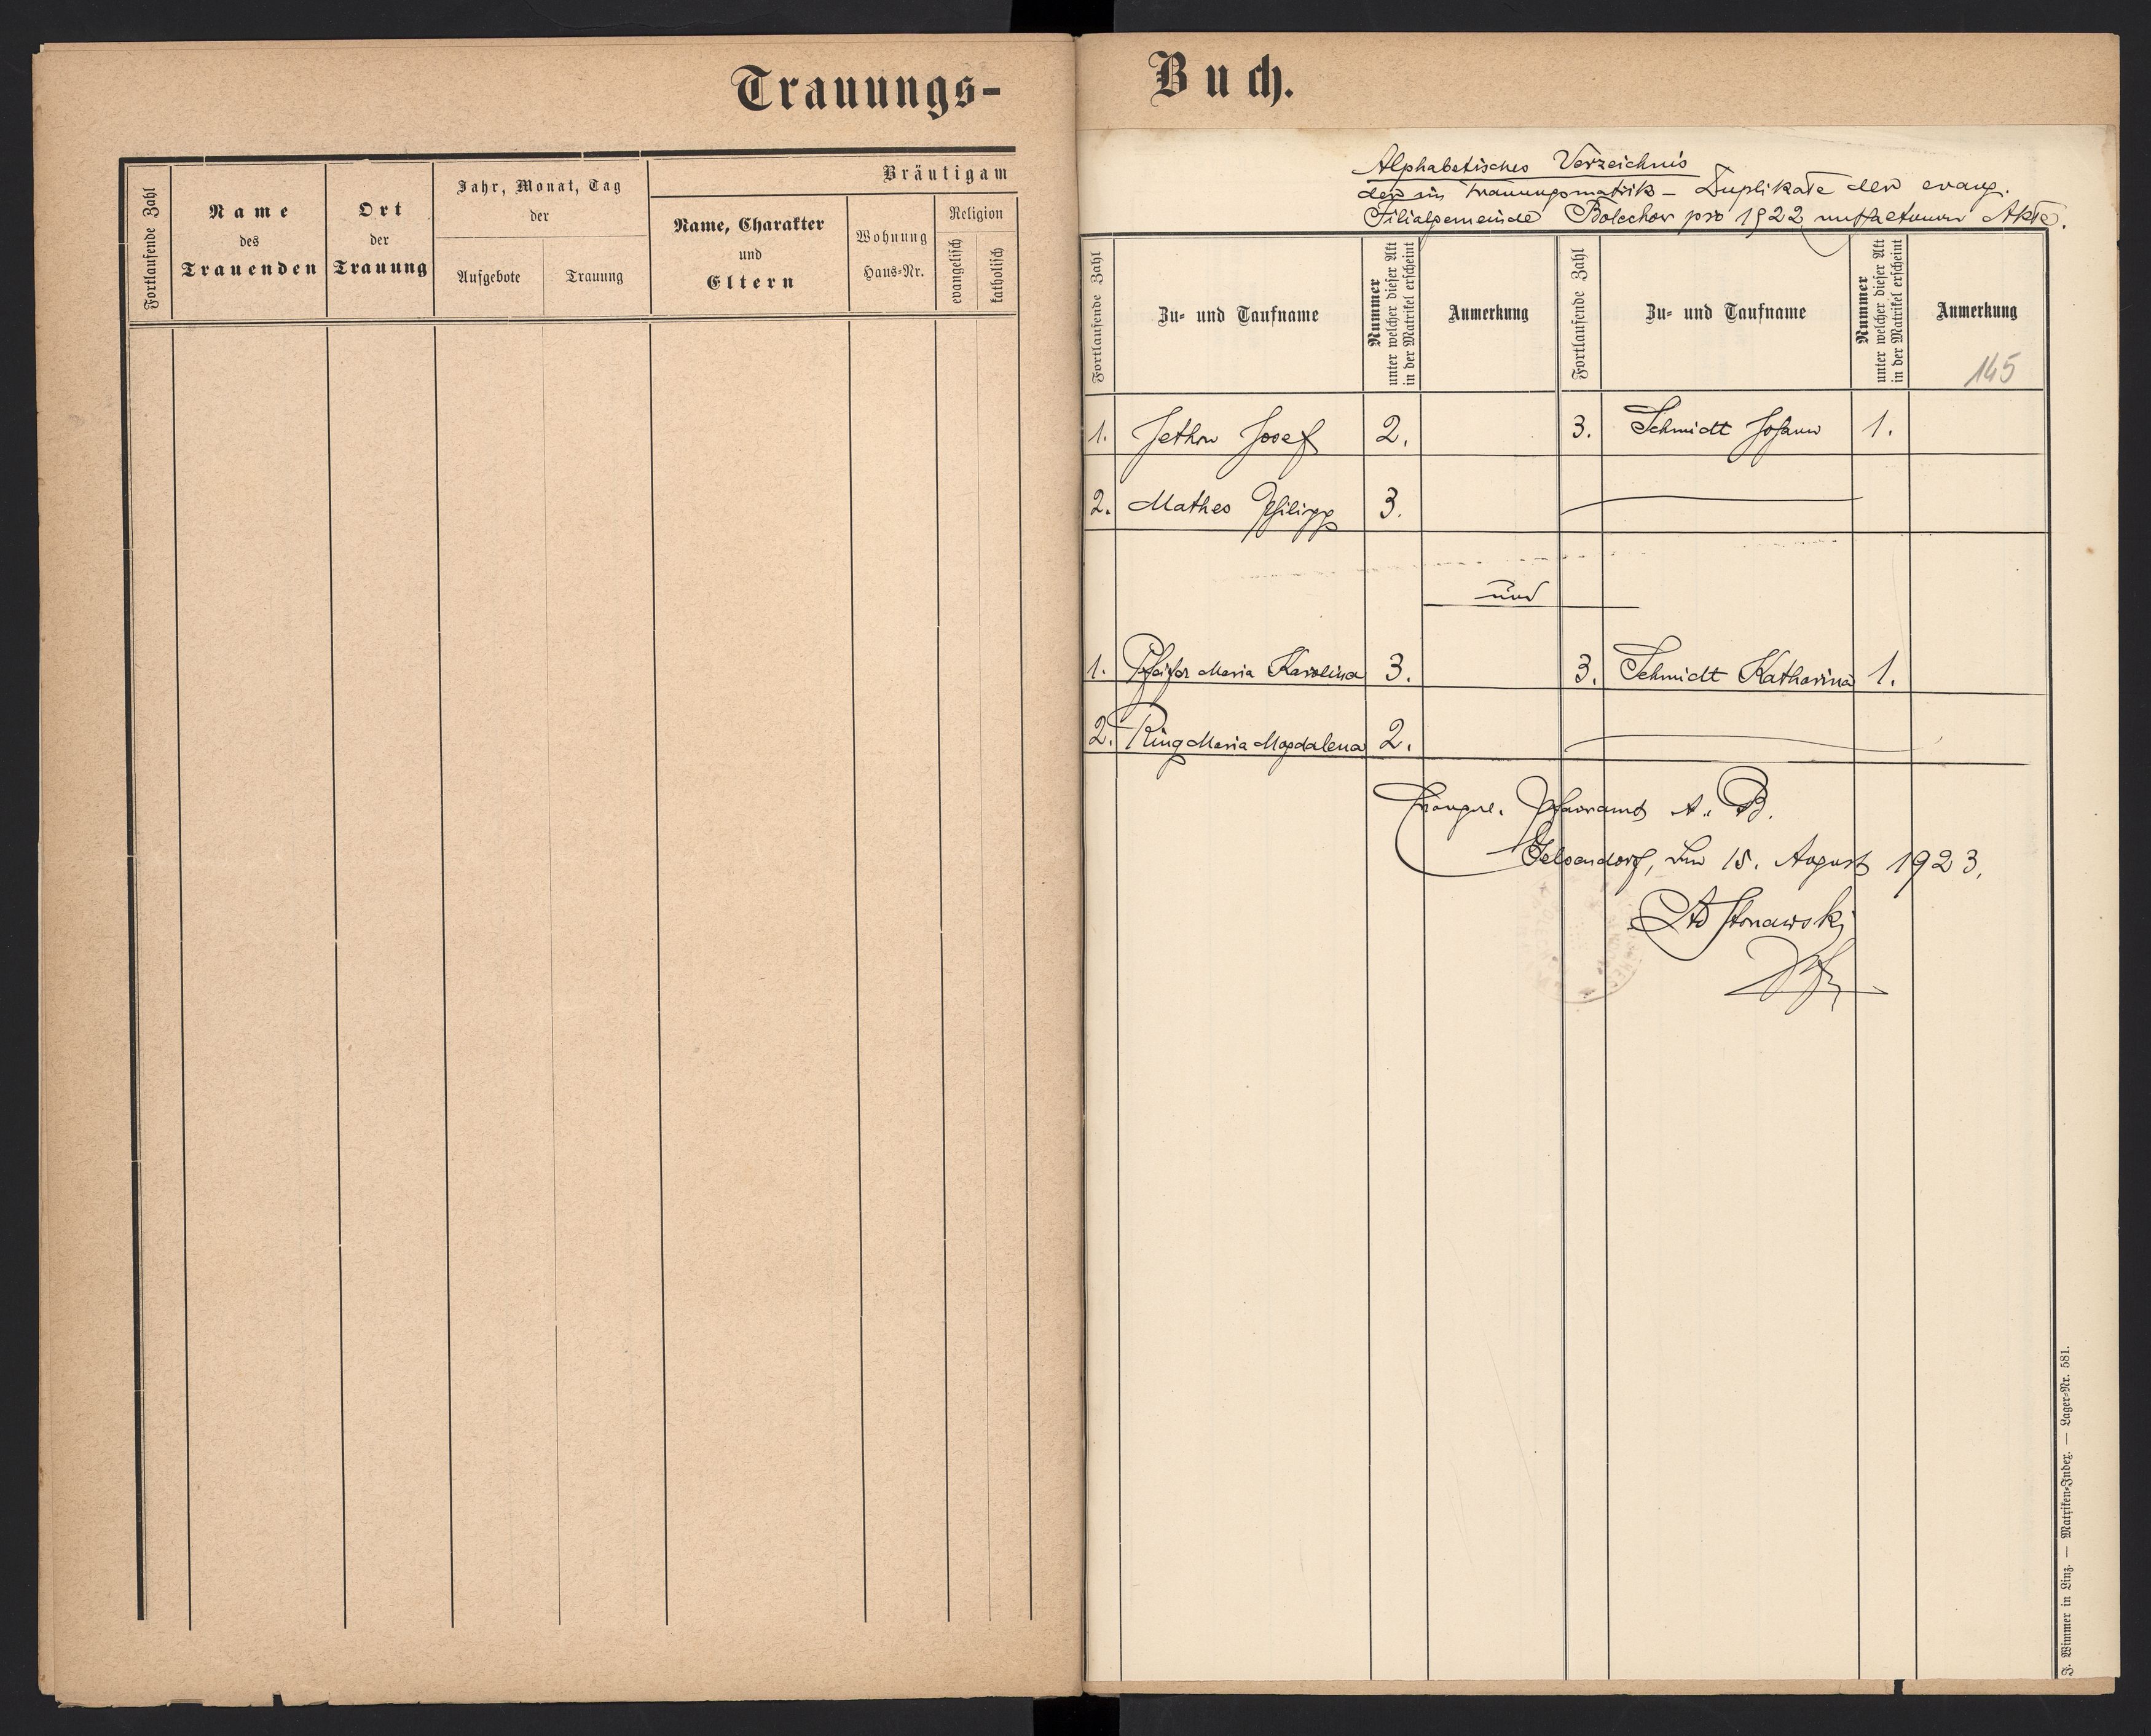 Trauungs-
Buch.
Fortlaufende Zahl
Name
des
Trauenden
Ort
der
Trauung
Jahr, Monat, Tag
der
Aufgebote
Trauung
Bräutigam
Name, Charakter
und
Eltern
Wohnung
Haus-Nr.
Religion
evangelisch
katholisch
Alphabetisches Verzeichnis
der in Trauungsmatrik-Duplikate der evang.
Filialgemeinde Bolechow pro 1922 enthaltenen Akte.
Fortlaufende Zahl
Zu- und Taufname
Nummer
unter welcher dieser Akt
in der Matrikel erscheint
Anmerkung
Fortlaufende Zahl
Zu- und Taufname
Nummer
unter welcher dieser Akt
in der Matrikel erscheint
Anmerkung
145
1. Jethon Josef 2. 3. Schmidt Johann 1.
2. Mathes Philipp 3.
und
1. Pfeifer Maria Karolina 3. 3. Schmidt Katharina 1.
2. Ring Maria Magdalena 2.
Evangel. Pfarramt A. B.
Gelsendorf, den 15. August 1923.
Stonawski
J. Wimmer in Linz. — Matriken-Index. — Lager-Nr. 581.